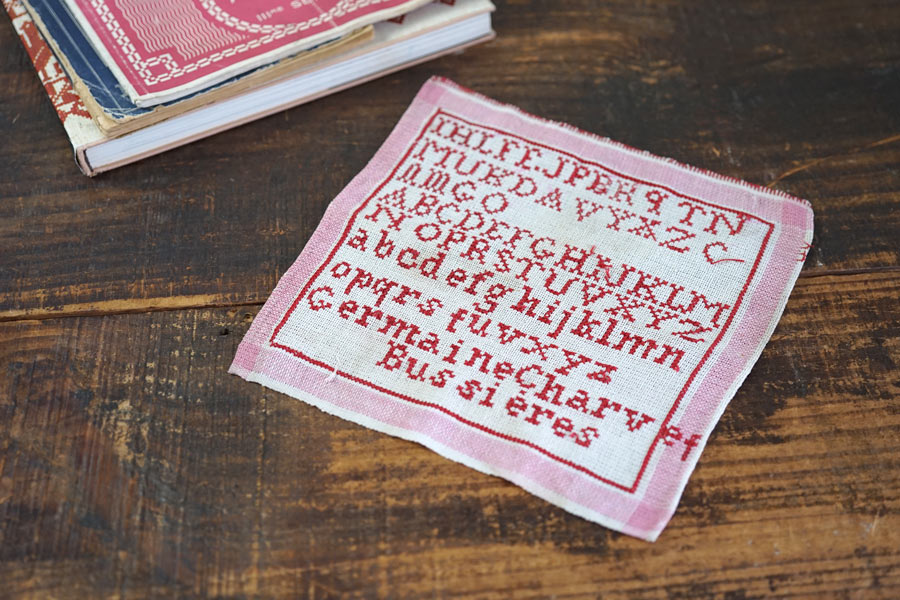 IHLFEJPBRQTN
MUKDAVYXZC
mmGO
ABCDEFGHIJKLM
NOPRSTUVXYZ
abcdefghijklmn
opqrstuvxyz
Germainecharvet
Bussières